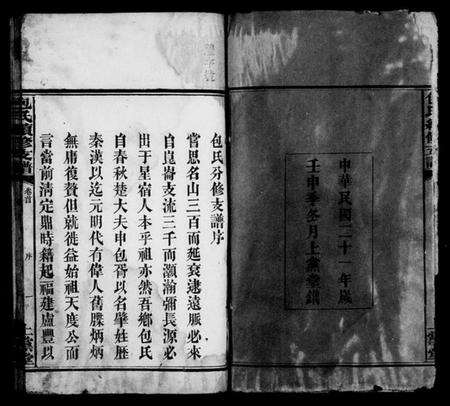 包氏續修支譜
中華民國二十一年歲
壬申季冬月上黨堂鐫
上黨堂
包氏分修支譜序
嘗思名山三百而延袤逮遠脈必來
自崑崙支流三千而灝瀚彌長源必
出于星宿人本乎祖亦然吾鄉包氏
自春秋楚大夫申包胥以名肇姓歷
秦漢以迄元明代有偉人舊牒炳炳
無庸復贅但就徙益始祖天度公而
言當前清定鼎時籍起福建盧豐以
包氏續修支譜
卷首
序
一
上黨堂